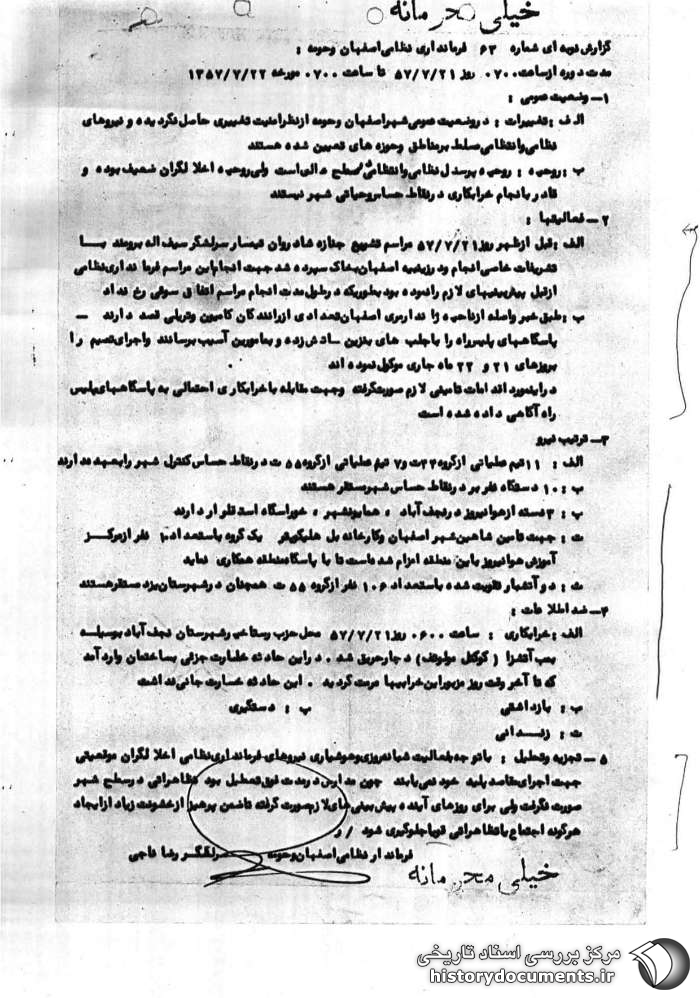 خیلی محرمانه
گزارش نوبه ای شماره ۶۳ فرمانداری نظامی اصفهان وحومه :
مدت دوره ازساعت ۰۷۰۰ روز ۵۷/۷/۲۱ تا ساعت ۰۷۰۰ مورخه ۱۳۵۷/۷/۲۲
۱ـ وضعیت عمومی :
الف : تغییرات : دروضعیت عمومی شهراصفهان وحومه ازنظرامنیت تغییری حاصل نگردیده و نیروهای
نظامی وانتظامی مسلط برمناطق وحوزه های تعیین شده هستند
ب : روحیه : روحیه پرسنل نظامی وانتظامی سطح عالی است ولی روحیه اخلالگران ضعیف بوده و
قادربانجام خرابکاری درنقاط حساس وحیاتی شهر نیستند
۲ـ فعالیتها :
الف : قبل ازظهر روز ۵۷/۷/۲۱ مراسم تشییع جنازه شادروان تیمسار سرلشگر سیف اله برومند بـا
تشریفات خاصی انجام ودرزینبیه اصفهان بخاک سپرده شد جهت انجام این مراسم فرمانداری نظامی
ازقبل پیش بینیهای لازم رانموده بود بطوریکه درطول مدت انجام مراسم اتفاق سوئی رخ نداد
ب : طبق خبر واصله ازناحیه ژاندارمری اصفهان تعدادی ازرانندگان کامیون وتریلی قصد دارند ـ
پاسگاههای پلیس راه را باجلب های بنزین آتش زده و بمامورین آسیب برسانند واجرای تصمیم را
بروزهای ۲۱ و ۲۲ ماه جاری موکول نموده اند
دراینمورد اقدامات تامینی لازم صورت گرفته وجهت مقابله باخرابکاری احتمالی به پاسگاههای پلیس
راه آگاهی داده شده است
۳ـ ترتیب نیرو
الف : ۱۱ تیم عملیاتی ازگروه ۴۴ ت و ۷ تیم عملیاتی ازگروه ۵۵ ت درنقاط حساس کنترل شهر رابعهده دارند
ب : ۱۰ دستگاه نفربر درنقاط حساس شهرمستقر هستند
پ : ۳ دسته ازهوانیروز درنجف آباد ، همایونشهر ، خوراسگاه استقرار دارند
ت : جهت تامین شاهین شهر اصفهان وکارخانه بل هلیکوپتر یک گروه باستعداد نفر ازمرکز
آموزش هوانیروز باین منطقه اعزام شده است تا با پاسگاه منطقه همکاری نماید
ث : دوآتشبار تقویت شده باستعداد ۱۰۶ نفر ازگروه ۵۵ ت همچنان درشهرستان یزد مستقرهستند
۴ـ ضد اطلاعات :
الف : خرابکاری : ساعت ۰۶۰۰ روز ۵۷/۷/۲۱ محل حزب رستاخیز شهرستان نجف آباد بوسیله
بمب آتشزا ( کوکتل مولوتف ) دچارحریق شد . دراین حادثه خسارت جزئی بساختمان واردآمد
که تا آخر وقت روز مزبور این خرابیها مرمت گردید . این حادثه خسارت جانی نداشت
ب : بازداشتی پ : دستگیری
ت : زنـدانی
۵ـ تجزیه وتحلیل : باتوجه بفعالیت شبانه روزی وهوشیاری نیروهای فرمانداری نظامی اخلالگران موقعیتی
جهت اجرای مقاصد پلید خود نمی یابند چون مدارس درمدت فوق تعطیل بود تظاهراتی درسطح شهر
صورت نگرفت ولی برای روزهای آینده پیش بینی های لازم صورت گرفته تاضمن پرهیز ازخشونت زیاد ازایجاد
هرگونه اجتماع یاتظاهراتی قویا جلوگیری شود / ر
فرماندار نظامی اصفهان وحومه سرلشگر رضا ناجی
خیلی محرمانه
مرکز بررسی اسناد تاریخی
historydocuments.ir